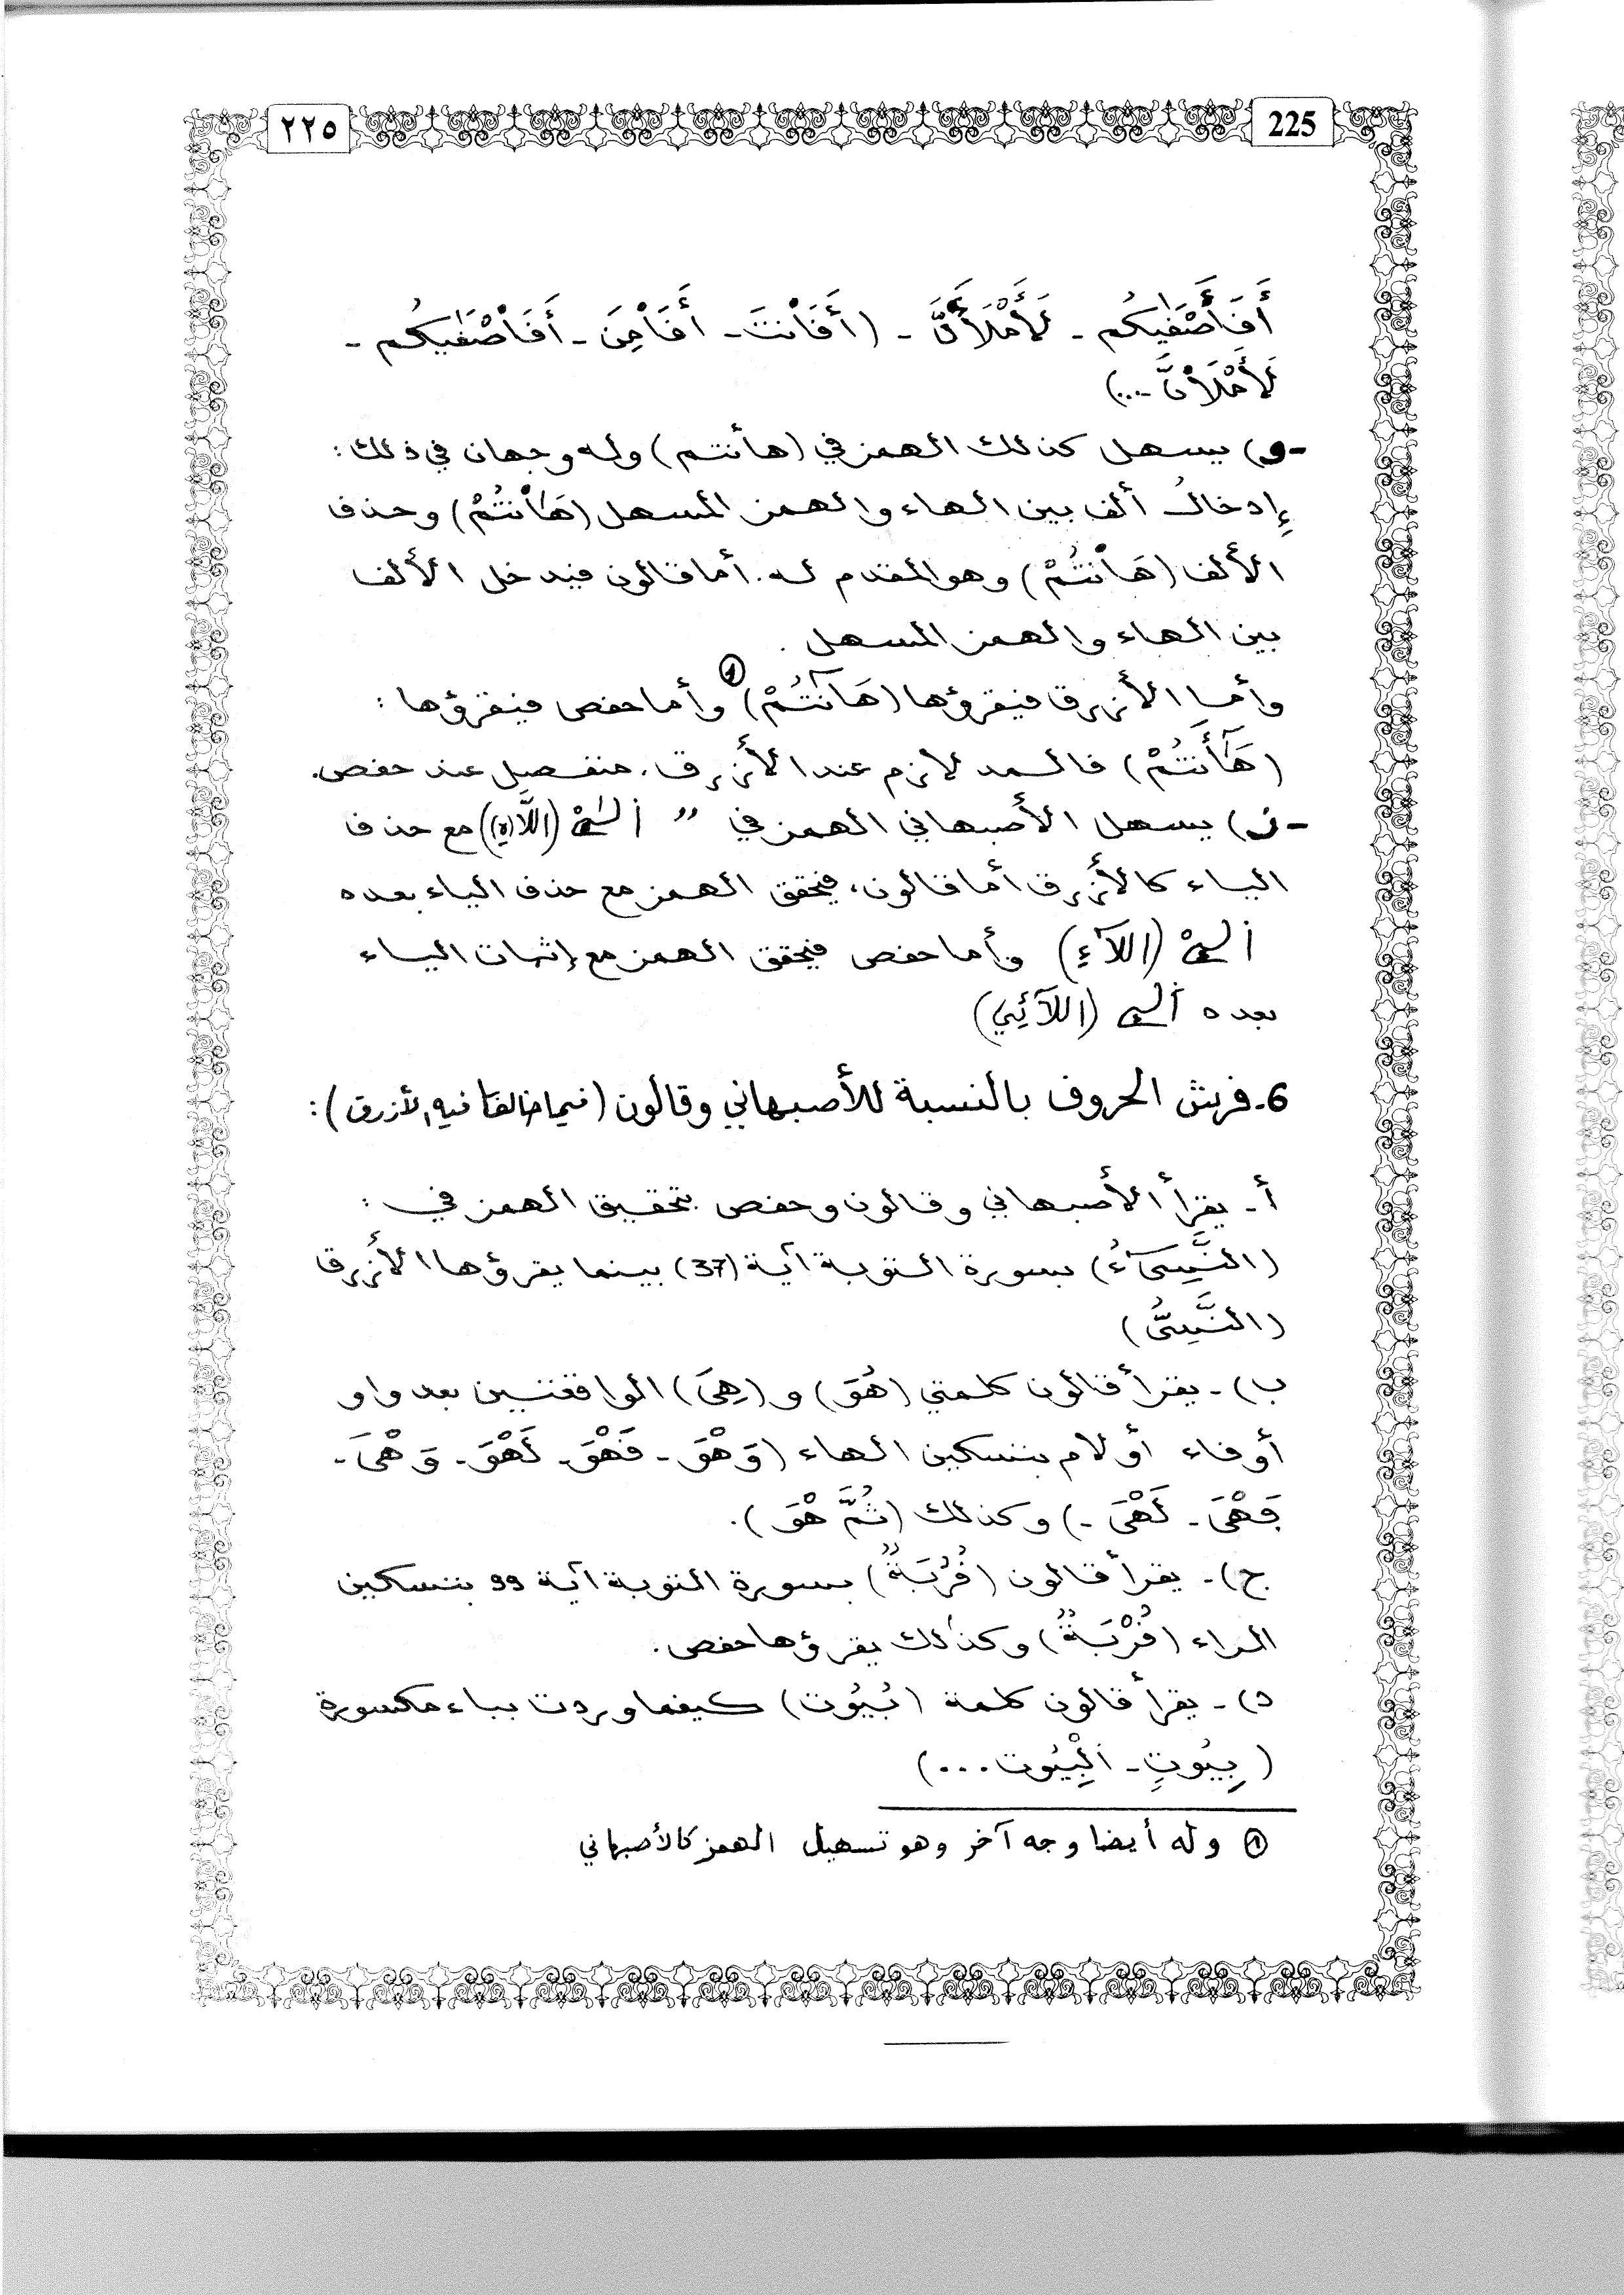 225 ٢٢٥
أَفَأَصْفَىٰكُم - لَأَمْلَأَنَّ - (أَفَاْنتَ - أَفَاْمِنَ - أَفَاْصْفَىٰكُم -
لَأَمْلَاْنَّ ...)
-و) يسهل كذلك الهمز في (هأنتم) وله وجهان في ذلك:
إدخالُ ألف بين الهاء والهمز المسهل (هَاٰنْتُمْ) وحذف
الألف (هَاْنتُمْ) وهو المقدم له. أما قالون فيدخل الألف
بين الهاء والهمز المسهل.
وأما الأزرق فيقرؤها (هَآنتُمْ) (1) وأما حفص فيقرؤها:
(هَٰٓأَنتُمْ) فالمد لازم عند الأزرق، منفصل عند حفص.
-ز) يسهل الأصبهاني الهمز في " ألــٰى (اللَّا(ه)) مع حذف
الياء كالأزرق أما قالون، فيحقق الهمز مع حذف الياء بعده
ألــى (اللَآءِ) وأما حفص فيحقق الهمز مع إثبات الياء
بعده ألــى (اللَآئِي)
6- فرش الحروف بالنسبة للأصبهاني وقالون (فيما خالفا فيه الأزرق):
أ- يقرأ الأصبهاني وقالون وحفص بتحقيق الهمز في:
(النَّسِىٓءُ) بسورة التوبة آية (37) بينما يقرؤها الأزرق
(النَّسِىُّ)
ب)- يقرأ قالون كلمتي (هُوَ) و(هِيَ) الواقعتين بعد واو
أو فاء أو لام بتسكين الهاء (وَهْوَ - فَهْوَ - لَهْوَ - وَهْىَ -
فَهْىَ - لَهْىَ -) وكذلك (ثُمَّ هْوَ).
ج)- يقرأ قالون (قُرُبَةٌ) بسورة التوبة آية 99 بتسكين
الراء (قُرْبَةٌ) وكذلك يقرؤها حفص.
د)- يقرأ قالون كلمة (بُيُوت) كيفما وردت بباء مكسورة
(بِيُوتِ - اَلْبِيُوت ...)
(1) وله أيضا وجه آخر وهو تسهيل الهمز كالأصبهاني